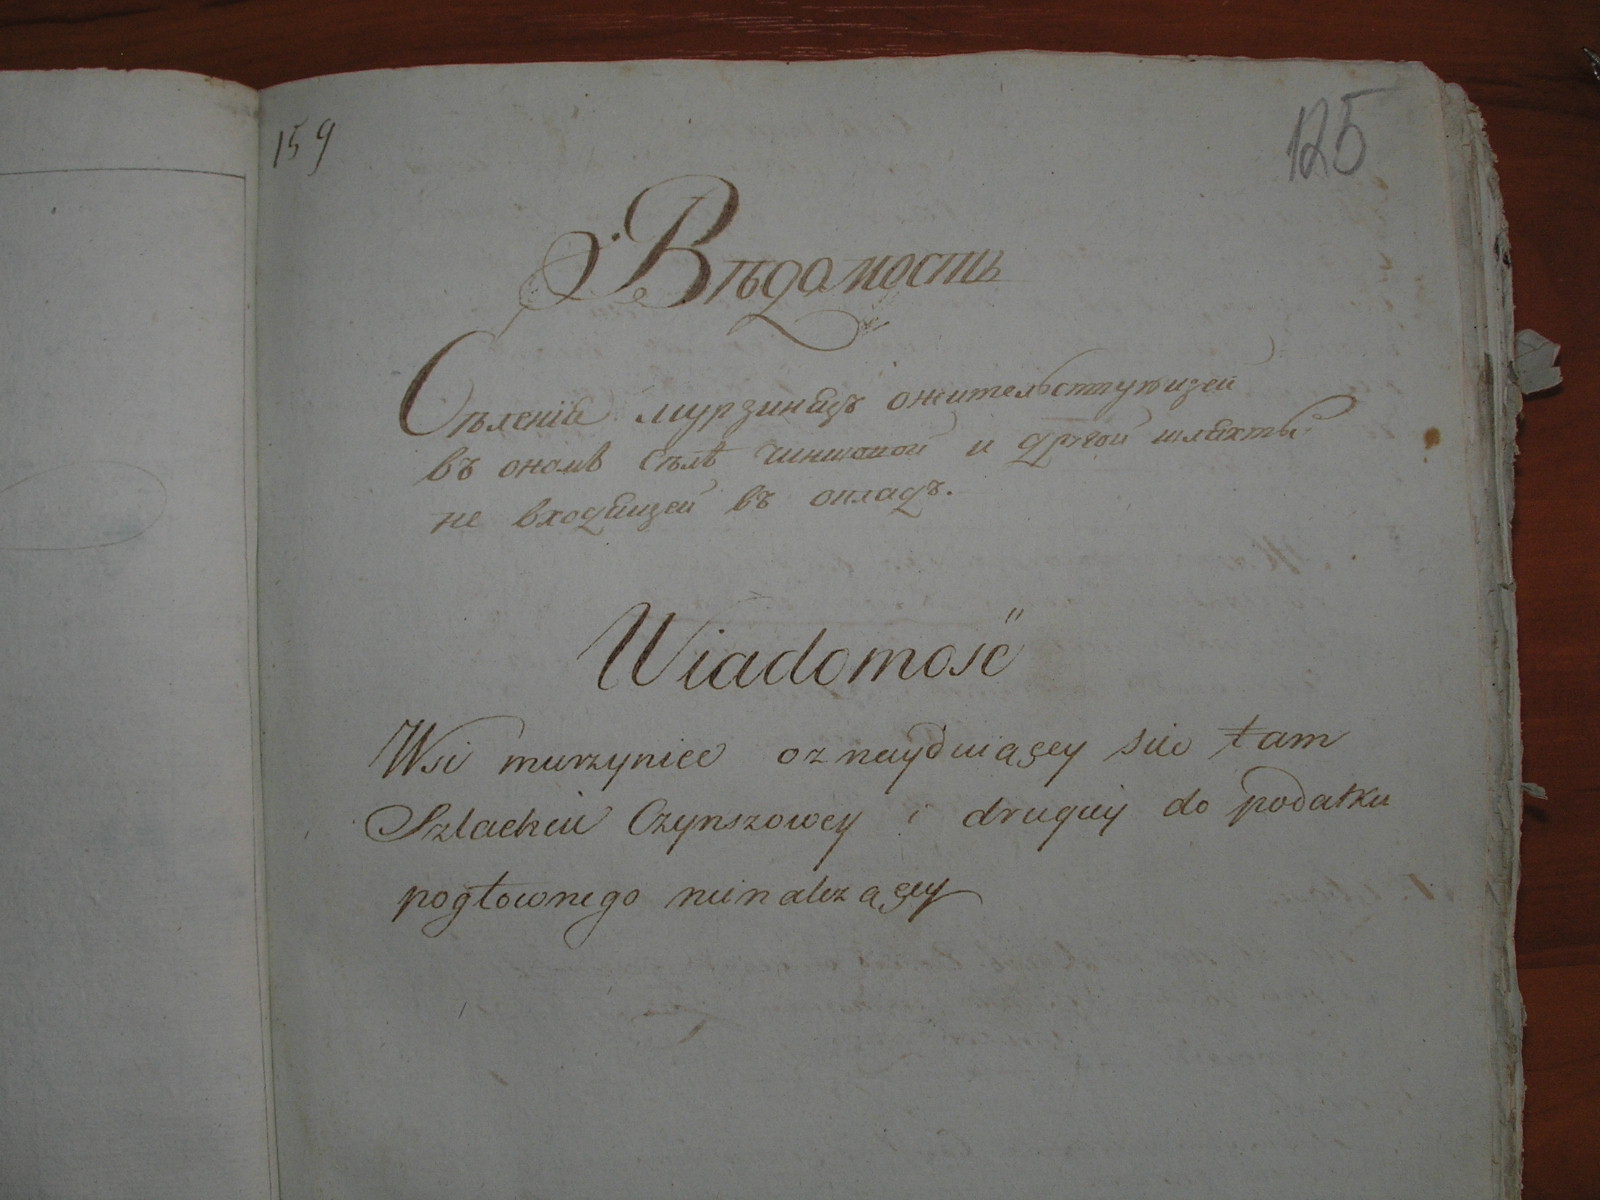 159
125
Вѣдомость
Сѣленія Мурзинецъ ожителствующей
въономъ Сѣлѣ Чиншовой и другой шляхты
не входящей въ окладъ.
Wiadomość
Wsi murzyniec oznayduiącey sie tam
Szlachcie Czynszowey i drugiiy do podatku
pogłownego nienależącey